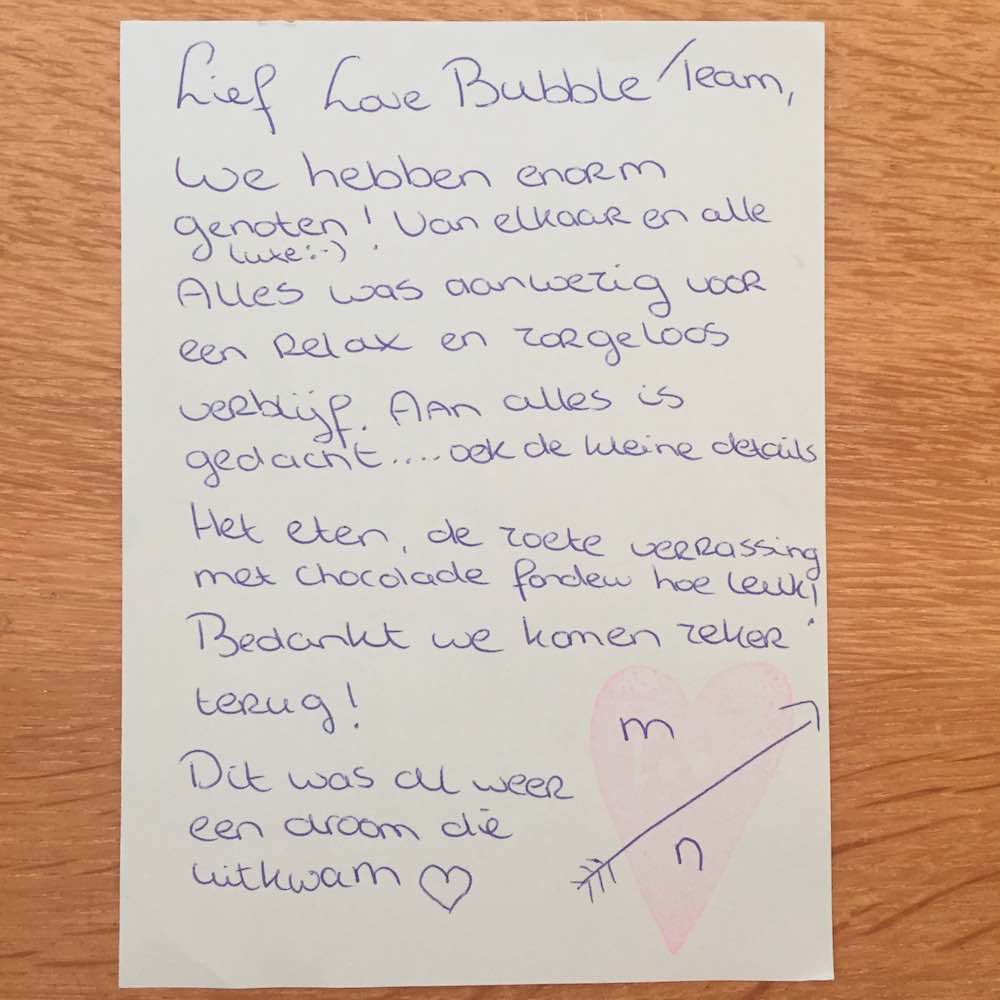 Lief Love Bubble/Team,
We hebben enorm
genoten! Van elkaar en alle
luxe :-)
Alles was aanwezig voor
een relax en zorgeloos
verblijf. Aan alles is
gedacht.... ook de kleine details
Het eten, de zoete verrassing
met chocolade fondew hoe leuk!
Bedankt we komen zeker
terug!
Dit was al weer
een droom die
uitkwam ♡
m
n